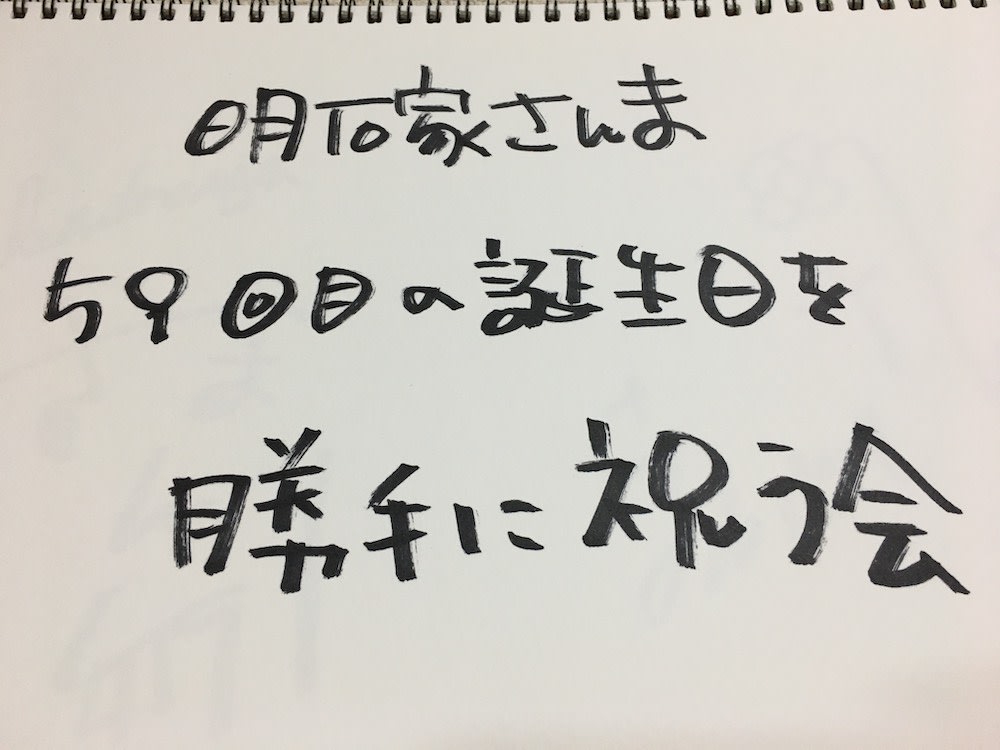 明石家さんま
59回目の誕生日を
勝手に祝う会